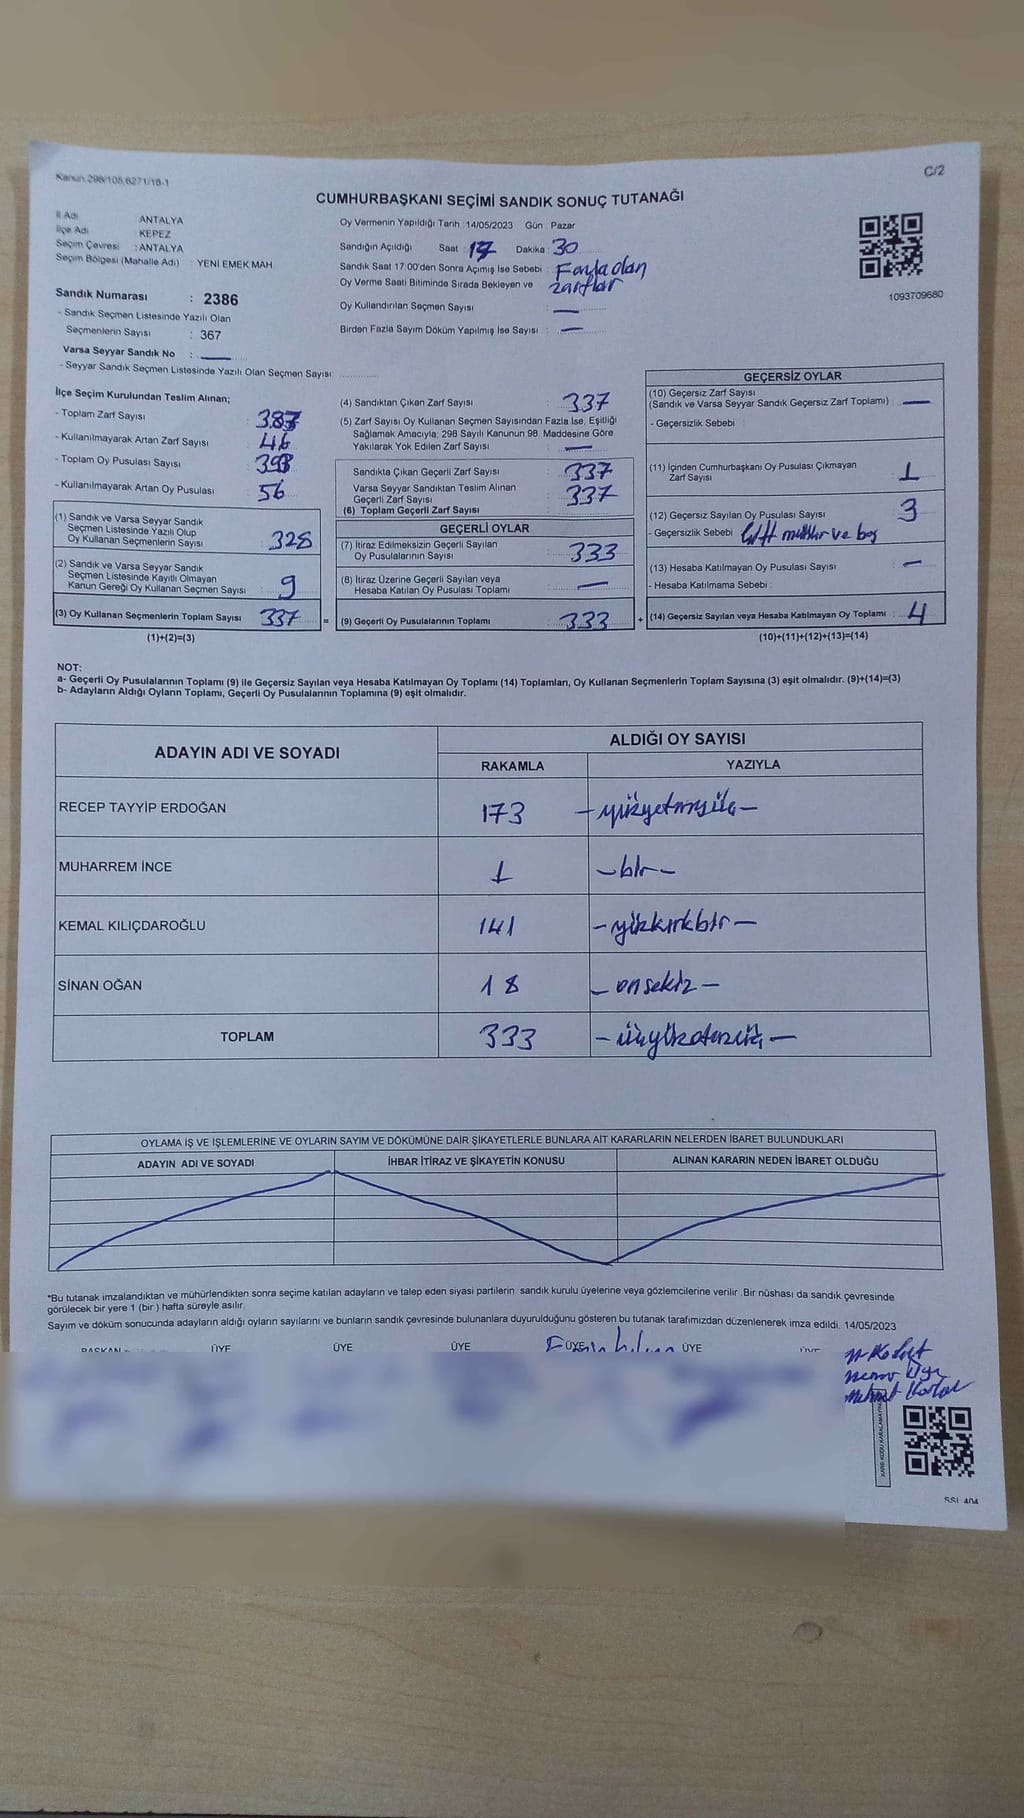 Kanun 298/105,6271/18-1
C/2
CUMHURBAŞKANI SEÇİMİ SANDIK SONUÇ TUTANAĞI
İl Adı : ANTALYA
İlçe Adı : KEPEZ
Seçim Çevresi : ANTALYA
Seçim Bölgesi (Mahalle Adı) : YENİ EMEK MAH
Sandık Numarası : 2386
- Sandık Seçmen Listesinde Yazılı Olan
Seçmenlerin Sayısı : 367
Varsa Seyyar Sandık No : —
- Seyyar Sandık Seçmen Listesinde Yazılı Olan Seçmen Sayısı:
Oy Vermenin Yapıldığı Tarih :14/05/2023 Gün : Pazar
Sandığın Açıldığı Saat : 17 Dakika : 30
Sandık Saat 17.00'den Sonra Açımış İse Sebebi : Fazla olan
Oy Verme Saati Bitiminde Sırada Bekleyen ve zarflar
Oy Kullandırılan Seçmen Sayısı : —
Birden Fazla Sayım Döküm Yapılmış İse Sayısı : —
1093709680
İlçe Seçim Kurulundan Teslim Alınan;
- Toplam Zarf Sayısı : 383
- Kullanılmayarak Artan Zarf Sayısı : 46
- Toplam Oy Pusulası Sayısı : 393
- Kullanılmayarak Artan Oy Pusulası : 56
(1) Sandık ve Varsa Seyyar Sandık
Seçmen Listesinde Yazılı Olup
Oy Kullanan Seçmenlerin Sayısı : 328
(2) Sandık ve Varsa Seyyar Sandık
Seçmen Listesinde Kayıtlı Olmayan
Kanun Gereği Oy Kullanan Seçmen Sayısı : 9
(3) Oy Kullanan Seçmenlerin Toplam Sayısı : 337
(1)+(2)=(3)
(4) Sandıktan Çıkan Zarf Sayısı : 337
(5) Zarf Sayısı Oy Kullanan Seçmen Sayısından Fazla İse, Eşitliği
Sağlamak Amacıyla; 298 Sayılı Kanunun 98. Maddesine Göre
Yakılarak Yok Edilen Zarf Sayısı : —
Sandıkta Çıkan Geçerli Zarf Sayısı : 337
Varsa Seyyar Sandıktan Teslim Alınan
Geçerli Zarf Sayısı : 337
(6) Toplam Geçerli Zarf Sayısı
GEÇERLİ OYLAR
(7) İtiraz Edilmeksizin Geçerli Sayılan
Oy Pusulalarının Sayısı : 333
(8) İtiraz Üzerine Geçerli Sayılan veya
Hesaba Katılan Oy Pusulası Toplamı : —
= (9) Geçerli Oy Pusulalarının Toplamı : 333 +
GEÇERSİZ OYLAR
(10) Geçersiz Zarf Sayısı
(Sandık ve Varsa Seyyar Sandık Geçersiz Zarf Toplamı) : —
- Geçersizlik Sebebi :
(11) İçinden Cumhurbaşkanı Oy Pusulası Çıkmayan
Zarf Sayısı : 1
(12) Geçersiz Sayılan Oy Pusulası Sayısı : 3
- Geçersizlik Sebebi : Çift mühür ve boş
(13) Hesaba Katılmayan Oy Pusulası Sayısı : —
- Hesaba Katılmama Sebebi :
(14) Geçersiz Sayılan veya Hesaba Katılmayan Oy Toplamı : 4
(10)+(11)+(12)+(13)=(14)
NOT:
a- Geçerli Oy Pusulalarının Toplamı (9) ile Geçersiz Sayılan veya Hesaba Katılmayan Oy Toplamı (14) Toplamları, Oy Kullanan Seçmenlerin Toplam Sayısına (3) eşit olmalıdır. (9)+(14)=(3)
b- Adayların Aldığı Oyların Toplamı, Geçerli Oy Pusulalarının Toplamına (9) eşit olmalıdır.
ADAYIN ADI VE SOYADI ALDIĞI OY SAYISI
RAKAMLA YAZIYLA
RECEP TAYYİP ERDOĞAN 173 – yüzyetmişüç –
MUHARREM İNCE 1 – bir –
KEMAL KILIÇDAROĞLU 141 – yüzkırkbir –
SİNAN OĞAN 18 – onsekiz –
TOPLAM 333 – üçyüzotuzüç –
OYLAMA İŞ VE İŞLEMLERİNE VE OYLARIN SAYIM VE DÖKÜMÜNE DAİR ŞİKAYETLERLE BUNLARA AİT KARARLARIN NELERDEN İBARET BULUNDUKLARI
ADAYIN ADI VE SOYADI İHBAR İTİRAZ VE ŞİKAYETİN KONUSU ALINAN KARARIN NEDEN İBARET OLDUĞU
*Bu tutanak imzalandıktan ve mühürlendikten sonra seçime katılan adayların ve talep eden siyasi partilerin sandık kurulu üyelerine veya gözlemcilerine verilir .Bir nüshası da sandık çevresinde
görülecek bir yere 1 (bir ) hafta süreyle asılır.
Sayım ve döküm sonucunda adayların aldığı oyların sayılarını ve bunların sandık çevresinde bulunanlara duyurulduğunu gösteren bu tutanak tarafımızdan düzenlenerek imza edildi. 14/05/2023
BAŞKAN ÜYE ÜYE ÜYE ÜYE ÜYE ÜYE